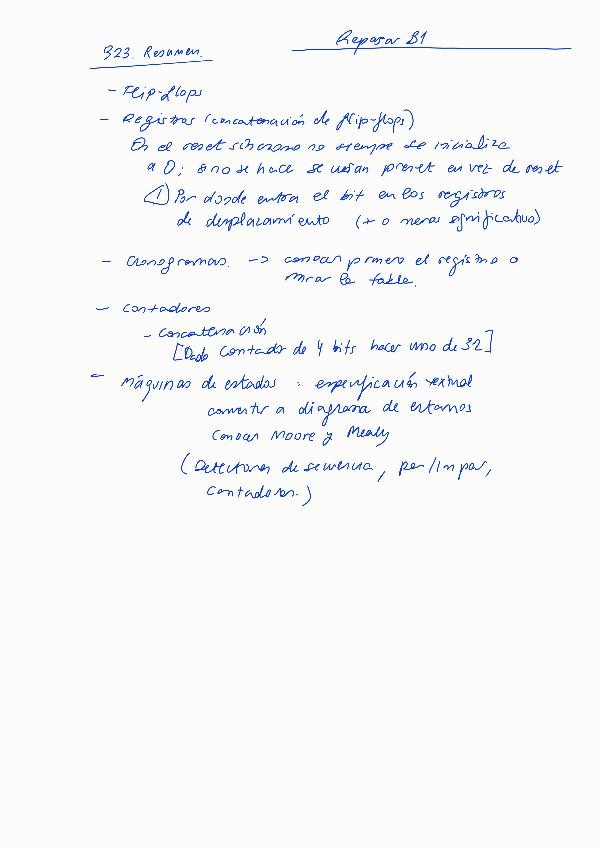 Repasar B1
B23. Resumen.
- Flip-flops
- Registros (concatenación de flip-flops)
En el reset síncrono no siempre se inicializa
a 0; si no se hace se usan preset en vez de reset
(1) Por donde entra el bit en los registros
de desplazamiento (+ o menos significativo)
- Cronogramas. -> conocer primero el registro o
mirar la tabla.
- Contadores
- Concatenación
[Dado contador de 4 bits hacer uno de 32]
- Máquinas de estados : especificación textual
convertir a diagrama de estados
Conocer Moore y Mealy
(Detectores de secuencia, par/impar,
contadores.)